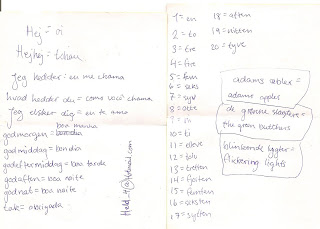 Hej = oi
Hejhej = tchau
Jeg hedder = eu me chamo
hvad hedder du = como você chama
Jeg elsker dig = eu te amo
godmorgen = bom dia
boa manha
godmiddag = bon dia
godeftermiddag = boa tarde
godaften = boa noite
godnat = boa noite
tak = obrigada
1 = en
2 = to
3 = tre
4 = fire
5 = fem
6 = seks
7 = syv
8 = otte
9 = ni
10 = ti
11 = elleve
12 = tolv
13 = tretten
14 = fjorten
15 = femten
16 = seksten
17 = sytten
18 = atten
19 = nitten
20 = tyve
adams æbler =
adams apples
de grønne slagtere =
the green butchers
blinkende lygter =
flickering lights